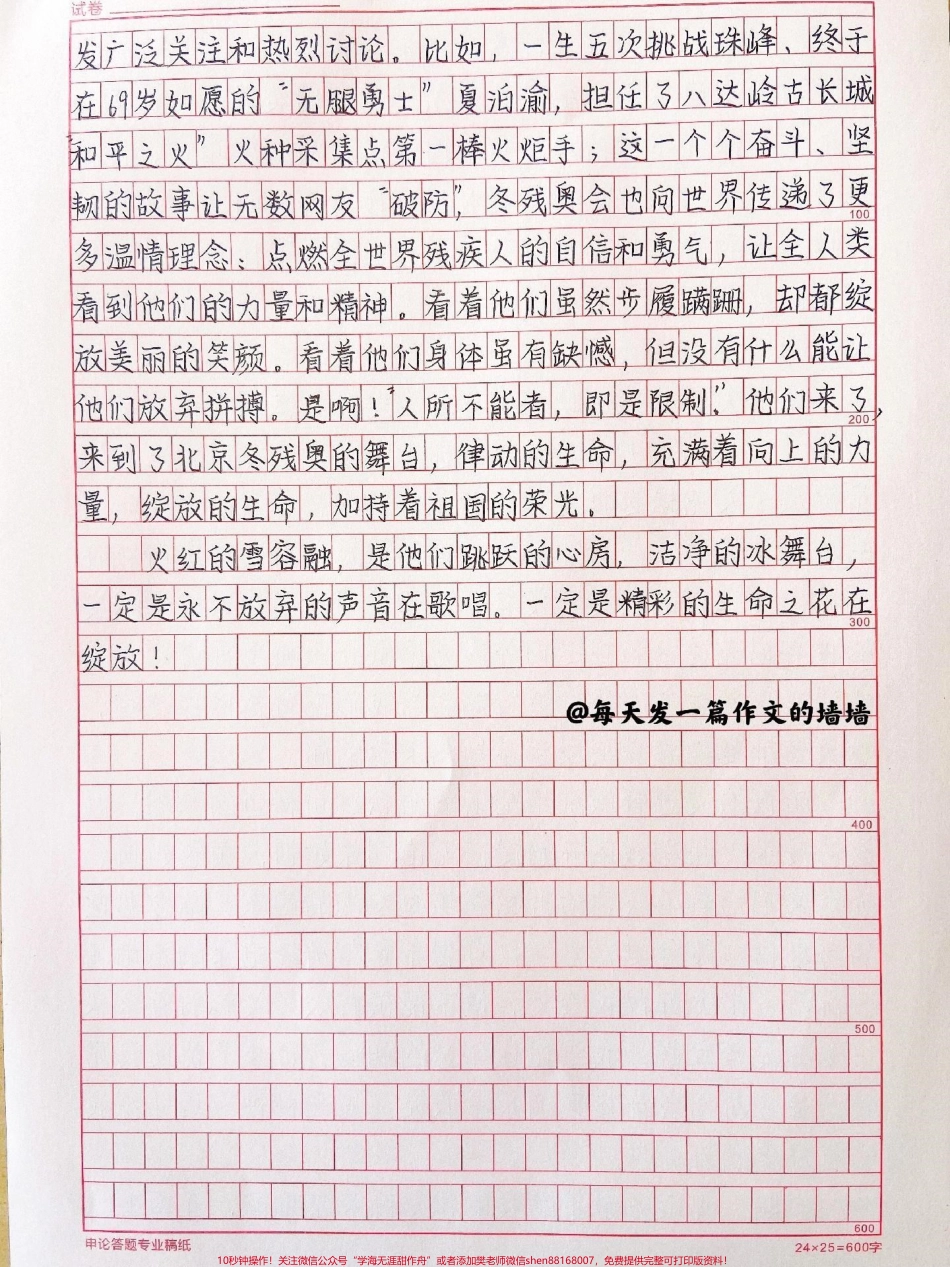 试卷
发广泛关注和热烈讨论。比如，一生五次挑战珠峰、终于
在69岁如愿的“无腿勇士”夏泊渝，担任了八达岭古长城
“和平之火”火种采集点第一棒火炬手；这一个个奋斗、坚
韧的故事让无数网友“破防”，冬残奥会也向世界传递了更
100
多温情理念：点燃全世界残疾人的自信和勇气，让全人类
看到他们的力量和精神。看着他们虽然步履蹒跚，却都绽
放美丽的笑颜。看着他们身体虽有缺憾，但没有什么能让
他们放弃拼搏。是啊！“人所不能者，即是限制。”他们来了，
200
来到了北京冬残奥的舞台，律动的生命，充满着向上的力
量，绽放的生命，加持着祖国的荣光。
火红的雪容融，是他们跳跃的心房，洁净的冰舞台，
一定是永不放弃的声音在歌唱。一定是精彩的生命之花在
300
绽放！
@每天发一篇作文的墙墙
400
500
600
申论答题专业稿纸 24×25=600字
10秒钟操作！关注微信公众号“学海无涯甜作舟”或者添加樊老师微信shen88168007，免费提供完整可打印版资料！